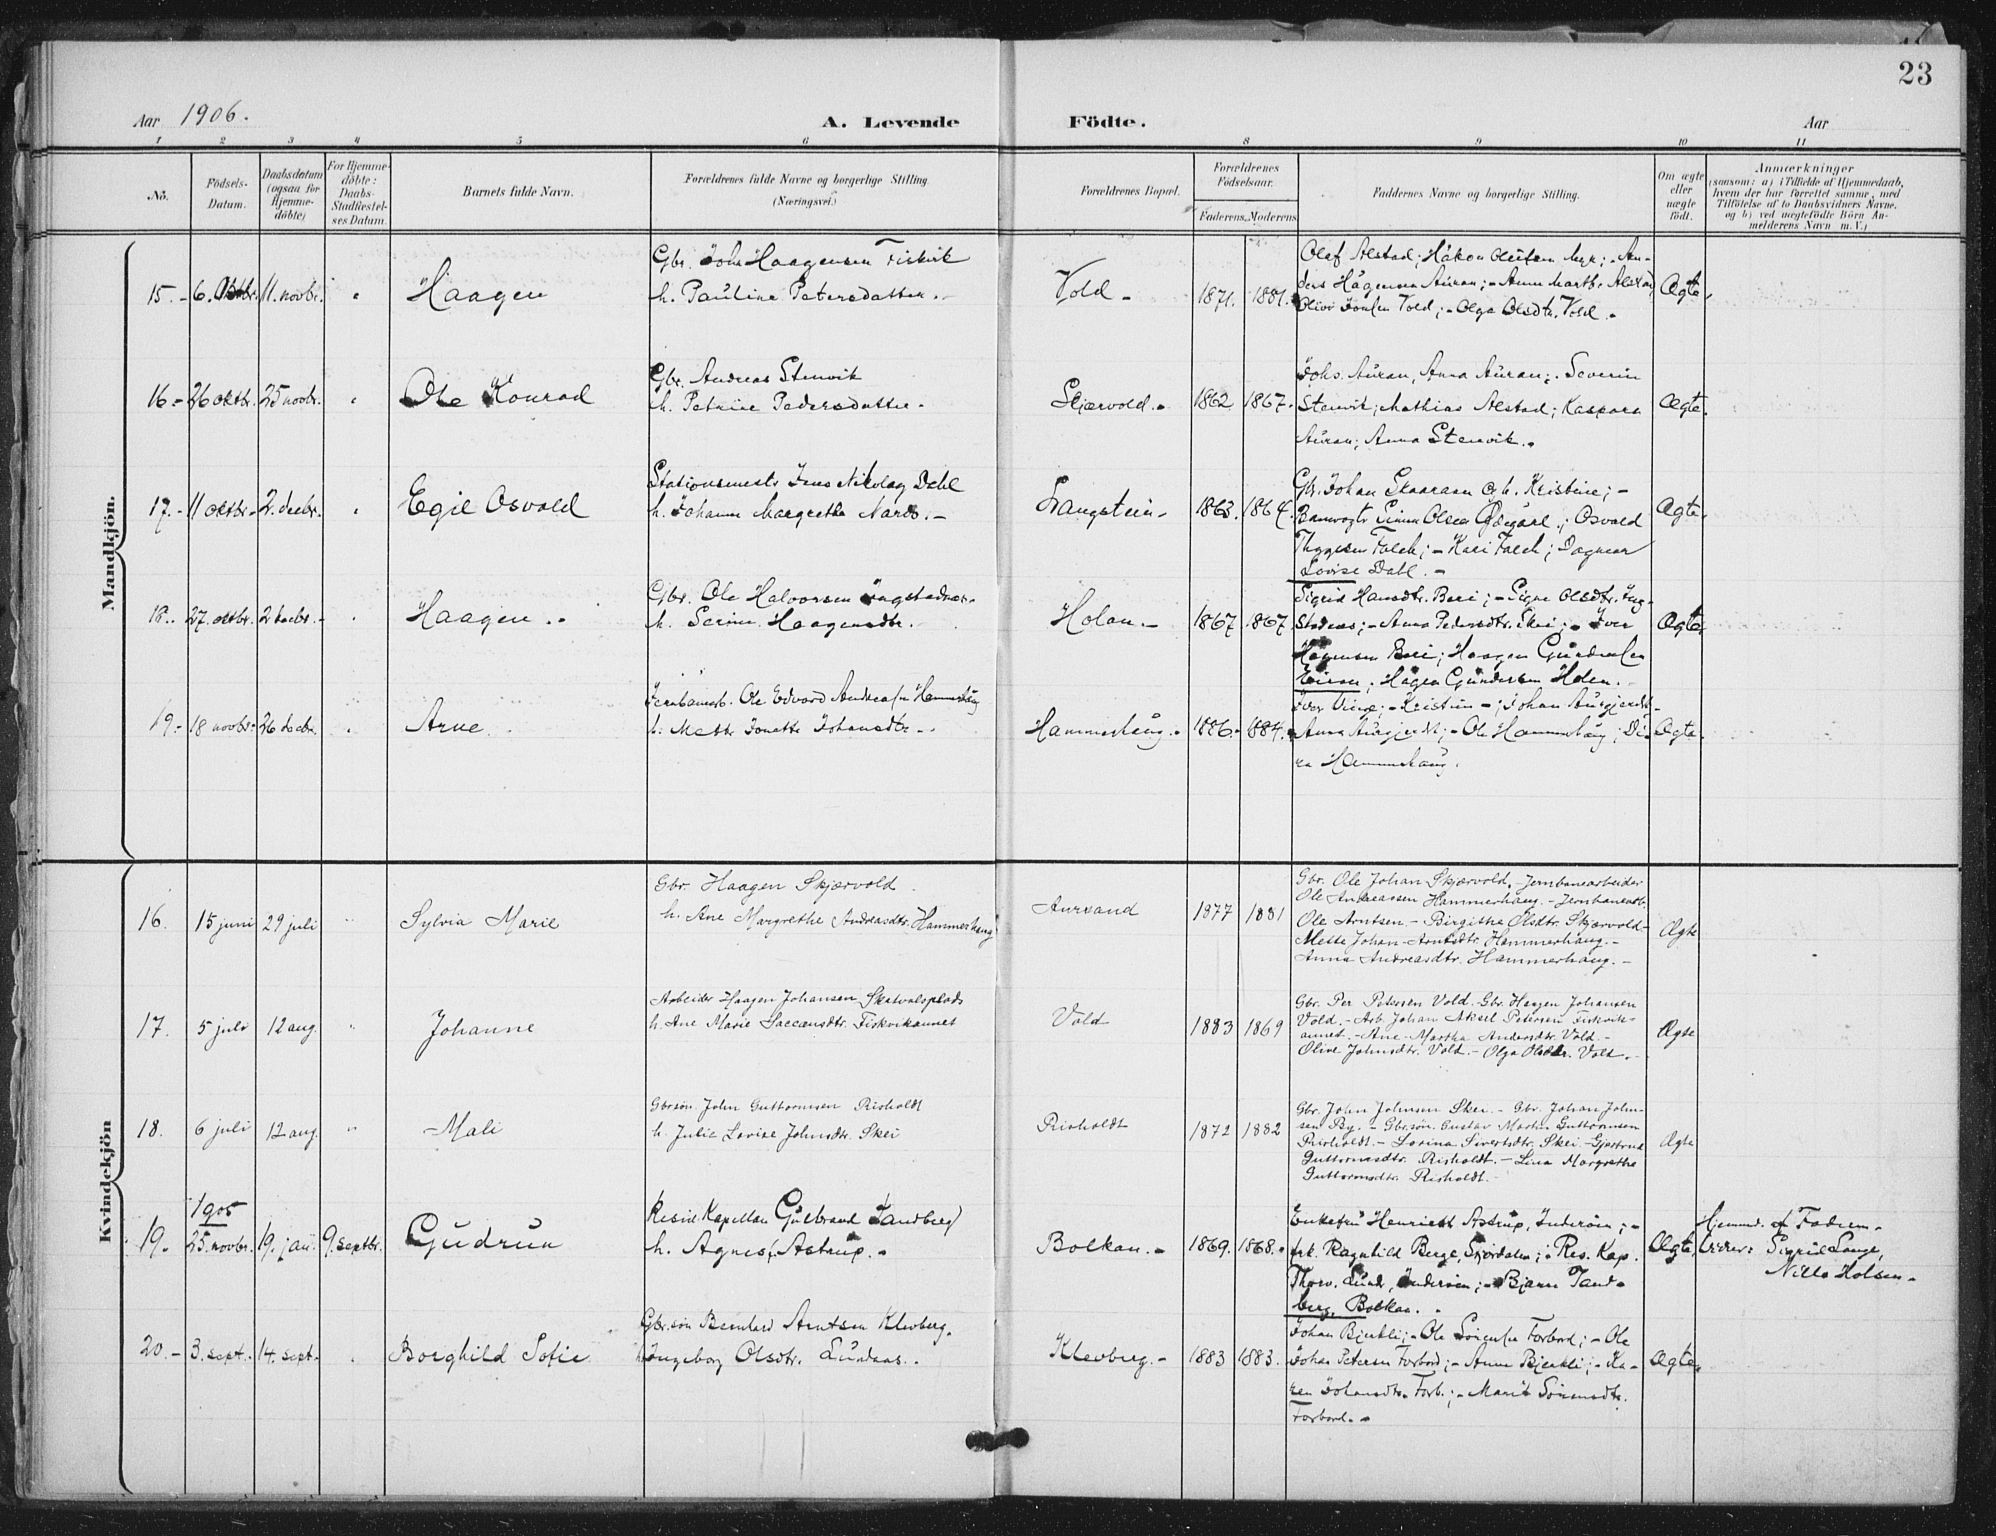 23
Aar 1906.
A. Levende Födte.
Aar
1 2 3 4 5 6 8 9 10 11
No.
Födsels-Datum.
Daabsdatum (ogsaa for Hjemme-döbte)
For Hjemme-döbte: Daabs-Stadfæstel-ses Datum.
Barnets fulde Navn.
Forældrenes fulde Navne og borgerlige Stilling (Næringsvei.)
Forældrenes Bopæl.
Forældrenes Födselsaar.
Faderens. Moderens.
Faddernes Navne og borgerlige Stilling.
Om ægte eller uægte födt.
Anmærkninger
(saasom: a) i Tilfælde af Hjemmedaab, hvem der har forrettet samme, med Tilföielse af to Daabsvidners Navne. og b) ved uægtefödte Börn An-melderens Navn m. V.)
Mandkjön.
15. - 6. Oktbr. 11. novbr. " Haagen
Gbr. Johs Haagensen Fiskvik
h. Pauline Petersdatter. -
Vold - 1871. 1881.
Olaf Alstad; Håkon Olufsen Myr; - An-
ders Hågensen Auran; - Anna Marth. Alstad
Vold; - Olga Olsdtr. Vold. -
Ægte.
16. - 26 oktbr. 25 novbr. " Ole Konrad
Gbr. Andreas Stenvik
h. Petrine Pedersdatter -
Skjærvold. - 1862 1867.
Johs. Auran, Anna Auran; Severin
Stenvik; Mathias Alstad; Kaspara
Auran; Anna Stenvik. -
Ægte.
17. - 11 oktbr. - 2. decbr. " Egil Osvald
Stationsmestr Jens Nikolag Dahl
h. Johanne Margrethe
Langstein - 1863. 1864.
Gbr. Johan Skaaraan og h. Kristine; -
Banevogtr Olsen ; Osvald
Thygesen Falch; - Kari Falch; Dagmar
Lovise Dahl. -
Ægte.
18. . 27. oktbr. 2 decbr. - " Haagen. .
Gbr. Ole Halvorsen
h. Serine Haagensdtr.
Holan. - 1867 1867.
Sigrid Hansdtr. Beri; - Signe Olsdtr. Ing-
stadnes; - Anna Pedersdtr. Skei; - Iver
Hågensen ; Haagen
; Hågen Gundersen Holen. -
Ægte
19. - 18 novbr. 26 decbr. " Arne
Jernbanearb. Ole Edvard Andreasen Hammerhaug
h. Mette Johansdtr -
Hammerhaug. - 1886. - 1884.
Iver ; - Kristine - ; Johan
Anna ; - Ole Hammerhaug;
Hammerhaug.
Ægte.
Kvindekjön
16. 15 juni 29 juli " Sylvia Marie
Gbr. Haagen Skjærvold
h. Ane Margrethe Andreasdtr. Hammerhaug
Aursand 1877 1881
Gbr. Ole Johan Skjærvold. - Jernbanearbeider
Ole Andreassen Hammerhaug. - Jernbanearb.
Ole Arntsen - Birgithe Olsdtr. Skjærvold -
Mette Johan-Arntsdtr. Hammerhaug. -
Anna Andreasdtr. Hammerhaug. -
Ægte
17. 5 juli 12 aug. " Johanne
Arbeider Haagen Johansen Skatvalsplads
h. Ane Marie Fiskvikaunet
Vold 1883 1869
Gbr. Per Petersen Vold. Gbr. Haagen Johansen
Vold. - Arb. Johan Aksel Petersen Fiskvik-
aunet. - Ane-Martha Andersdtr. Vold. -
Oline Johnsdtr. Vold. - Olga Olsdtr. Vold. -
Ægte
18. 6 juli 12 aug. " Mali
Gbrsøn John Guttormsen Risholdt
h. Julie Lovise Johnsdtr. Skei
Risholdt 1872 1882
Gbr. John Johnsen Skei. - Gbr. Johan John-
sen By. - Gbrsøn Gustav Martin Guttormsen
Risholdt. - Lorina Sivertsdtr. Skei. - Gjertrud
Guttormsdtr. Risholdt. - Lina Margrethe
Guttormsdtr. Risholdt. -
Ægte
1905
19. 25. novbr. 19. jan. 9. septbr. Gudrun
Resid. Kapellan Gulbrand Tandberg
h. Agnes f. Astrup. -
Bolkan. - 1869. 1868. -
Enkefru Henriette Astrup, Inderøen; -
frk. Ragnhild Berge, Stjørdalen; - Res. Kap.
Thorv. Lund, Inderøen; - Bjarne Tand-
berg, Bolkan. .
Ægte.
Hjemmed. af Faderen -
Vidner: Sigrid Lange,
Nille Holsen -
20. - 3. sept. - 14. sept. " Borghild Sofie
Gbr.søn Bernhard Arntsen Klevberg.
h Ingeborg Olsdtr. Lundaas. .
Klevberg. - 1883 1883.
Johan Bjerkli; - Ole Forbord; - Ole
Johan Petersen Forbord; - Anna Bjerkli; - Ka-
ren Johansdtr. Forb.; - Marit Sørensdtr.
Forbord. -
Ægte.